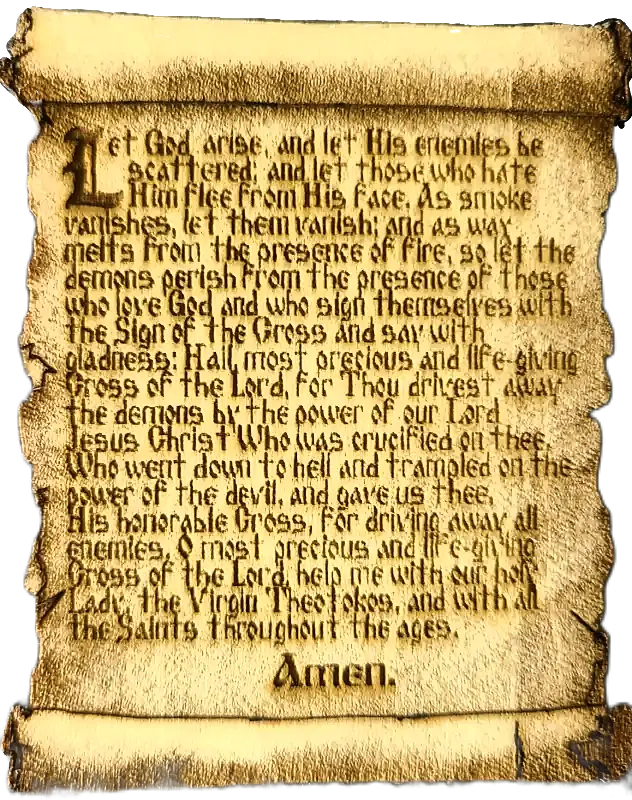 Let God arise, and let His enemies be
scattered; and let those who hate
Him flee from His face. As smoke
vanishes, let them vanish; and as wax
melts from the presence of fire, so let the
demons perish from the presence of those
who love God and who sign themselves with
the Sign of the Cross and say with
gladness: Hail, most precious and life-giving
Cross of the Lord, for Thou drivest away
the demons by the power of our Lord
Jesus Christ Who was crucified on thee,
Who went down to hell and trampled on the
power of the devil, and gave us thee,
His honorable Cross, for driving away all
enemies. O most precious and life-giving
Cross of the Lord, help me with our holy
Lady, the Virgin Theotokos, and with all
the Saints throughout the ages.
Amen.